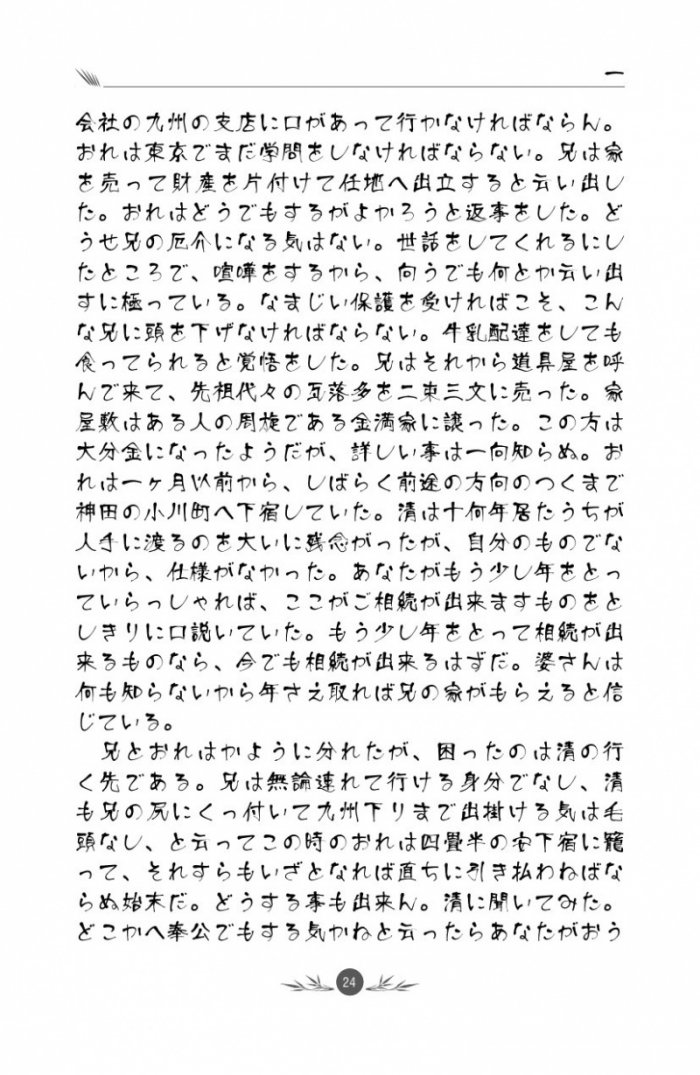 一
会社の九州の支店に口があって行かなければならん。
おれは東京でまだ学問をしなければならない。兄は家
を売って財産を片付けて任地へ出立すると云い出し
た。おれはどうでもするがよかろうと返事をした。ど
うせ兄の厄介になる気はない。世話をしてくれるにし
たところで、喧嘩をするから、向うでも何とか云い出
すに極っている。なまじい保護を受ければこそ、こん
な兄に頭を下げなければならない。牛乳配達をしても
食ってられると覚悟をした。兄はそれから道具屋を呼
んで来て、先祖代々の瓦落多を二束三文に売った。家
屋敷はある人の周旋である金満家に譲った。この方は
大分金になったようだが、詳しい事は一向知らぬ。お
れは一ヶ月以前から、しばらく前途の方向のつくまで
神田の小川町へ下宿していた。清は十何年居たうちが
人手に渡るのを大いに残念がったが、自分のものでな
いから、仕様がなかった。あなたがもう少し年をとっ
ていらっしゃれば、ここがご相続が出来ますものをと
しきりに口説いていた。もう少し年をとって相続が出
来るものなら、今でも相続が出来るはずだ。婆さんは
何も知らないから年さえ取れば兄の家がもらえると信
じている。
兄とおれはかように分れたが、困ったのは清の行
く先である。兄は無論連れて行ける身分でなし、清
も兄の尻にくっ付いて九州下りまで出掛ける気は毛
頭なし、と云ってこの時のおれは四畳半の安下宿に籠
って、それすらもいざとなれば直ちに引き払わねばな
らぬ始末だ。どうする事も出来ん。清に聞いてみた。
どこかへ奉公でもする気かねと云ったらあなたがおう
24